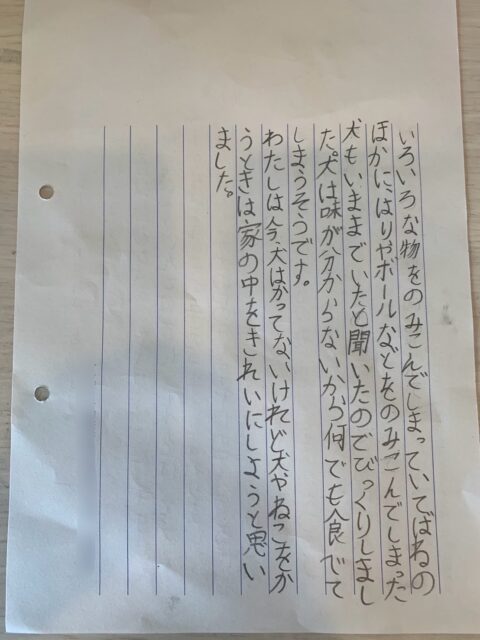 いろいろな物をのみこんでしまっていてばねの
ほかに、はりやボールなどをのみこんでしまった
犬もいままでいたと聞いたのでびっくりしまし
た。犬は味が分からないから何でも食べて
しまうそうです。
わたしは今、犬はかってないけれど犬やねこをか
うときは家の中をきれいにしようと思い
ました。